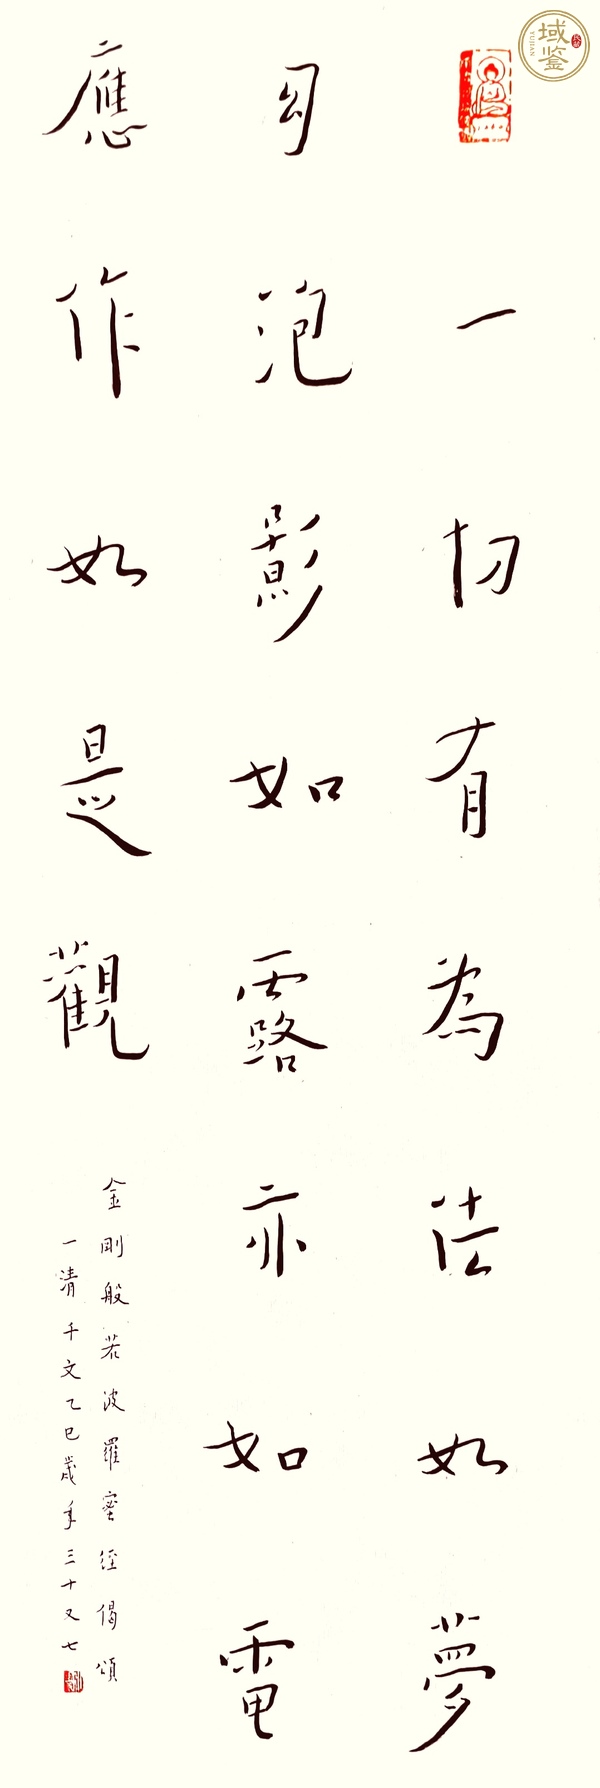 域鉴
YUJIAN
一切有為法如夢
幻泡影如露亦如電
應作如是觀
金剛般若波羅蜜經偈頌
一清千文乙巳歲年三十又七